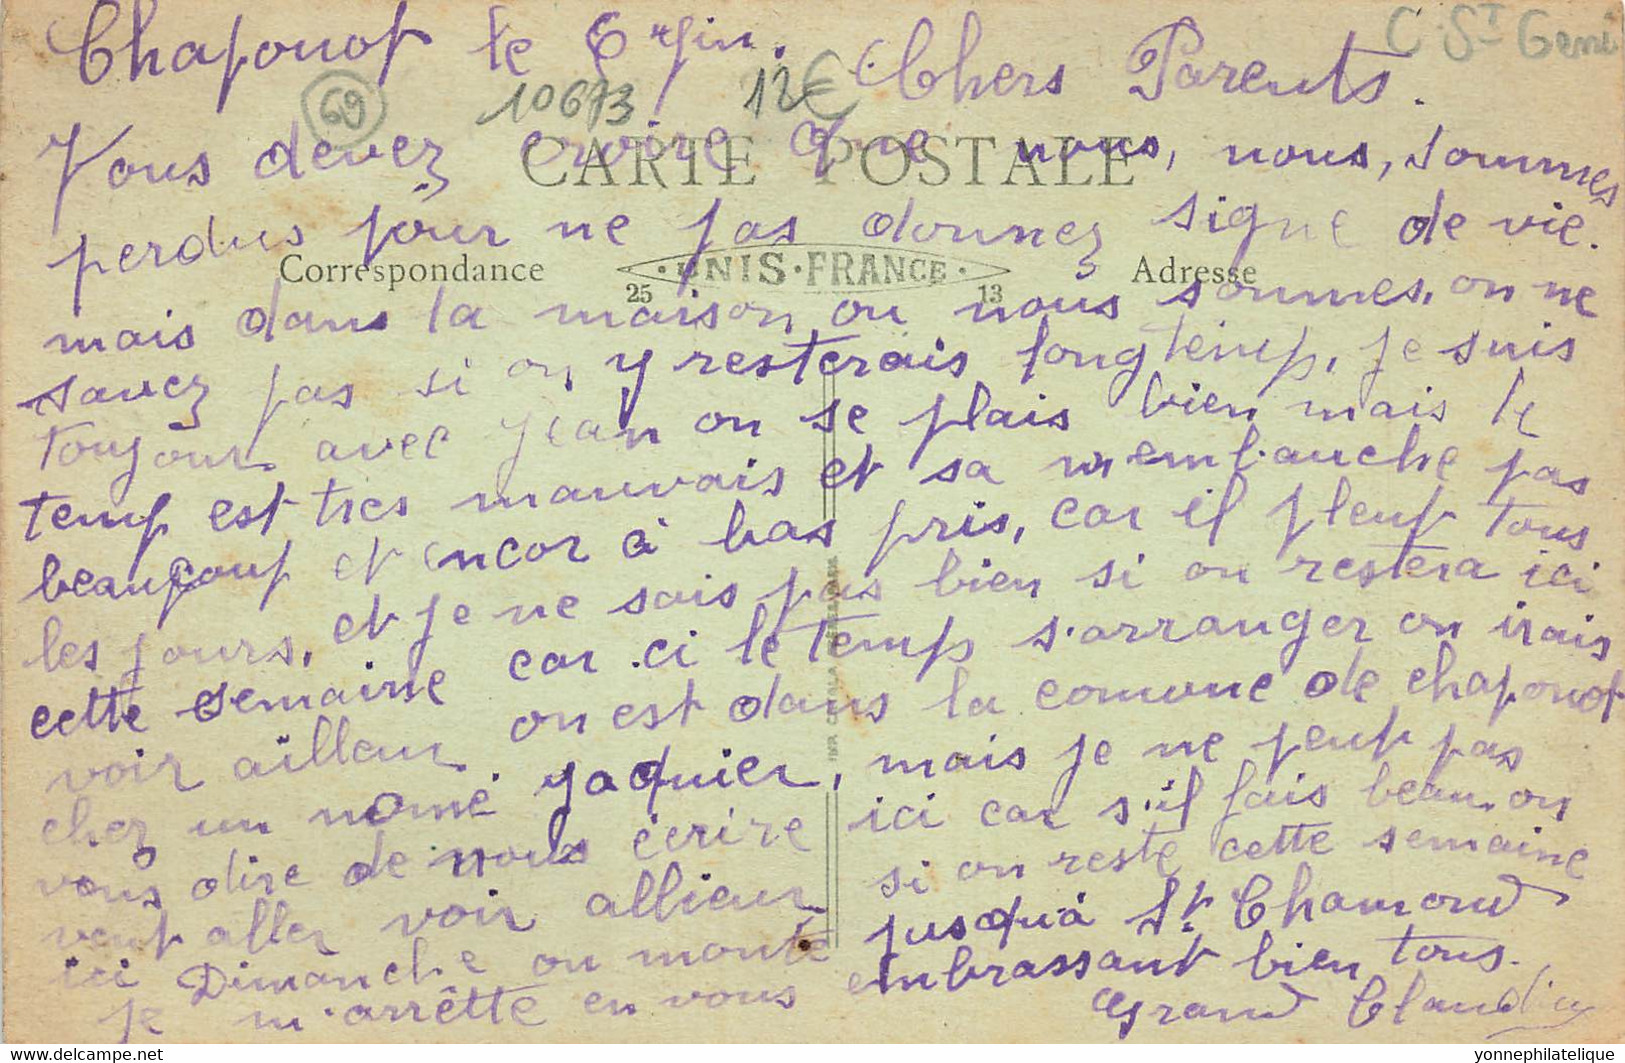 C St Geni
Chaponot le 6 Juin. Chers Parents.
69 10673 12€
Vous devez croire que nous, nous, sommes
CARTE POSTALE
perdus pour ne pas donnez signe de vie.
Correspondance UNIS-FRANCE Adresse
25 13
mais dans la maison ou nous sommes, on ne
savez pas si on y resterais longtemp, je suis
toujour avec Jean on se plais bien mais le
temp est tres mauvais et sa n'embauche pas
beaucoup et encor à bas pris, car il pleut tous
les jours, et je ne sais pas bien si on restera ici
cette semaine car ci le temp s'arranger on irais
voir ailleur on est dans la comune de chaponot
chez un nomé jaquier, mais je ne peut pas
vous dire de nous écrire ici car s'il fais beau on
veut aller voir allieur si on reste cette semaine
ici Dimanche on monte jusqu'à St Chamond
je m'arrêtte en vous embrassant bien tous.
Grand Claudius
yonnephilatelie.com
www.delcampe.net